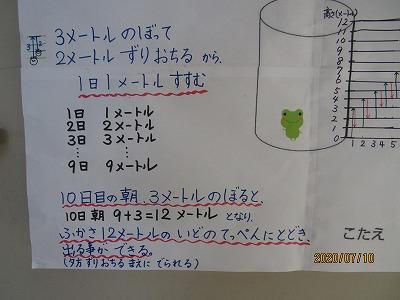 3メートル のぼって
2メートル ずりおちる から、
1日 1メートル すすむ
1日 1メートル
2日 2メートル
3日 3メートル
⋮ ⋮
9日 9メートル
10日目の 朝、3メートルのぼると、
10日 朝 9+3=12 メートル となり、
ふかさ12メートルの いどの てっぺんにとどき、
出る事が できる。
(夕方 ずりおちる まえに でられる)
高さ(メートル)
12
11
10
9
8
7
6
5
4
3
2
1
0
1 2 3 4 5
こたえ
2020/07/10